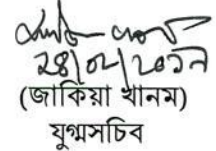 ২৪/০২/২০১৯
(জাকিয়া খানম)
যুগ্মসচিব